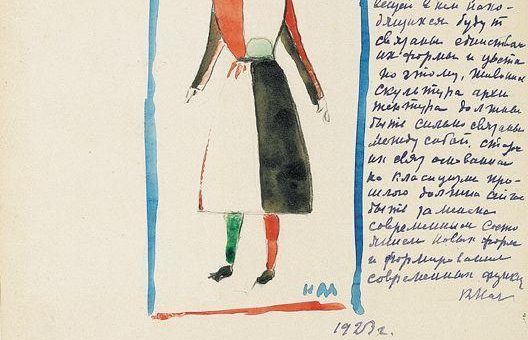 вещей в нем нахо-
дящихся будут
связаны единством
их формы и цвета
по этому, живопись
скульптура архи
тектура должны
быть сильно связаны
между собой. стара
их связ основанная
на класицизме про-
шлого должна
быть заменена
современным состо
янием новых форм
и формированием
современных функц
КМал
1923г.